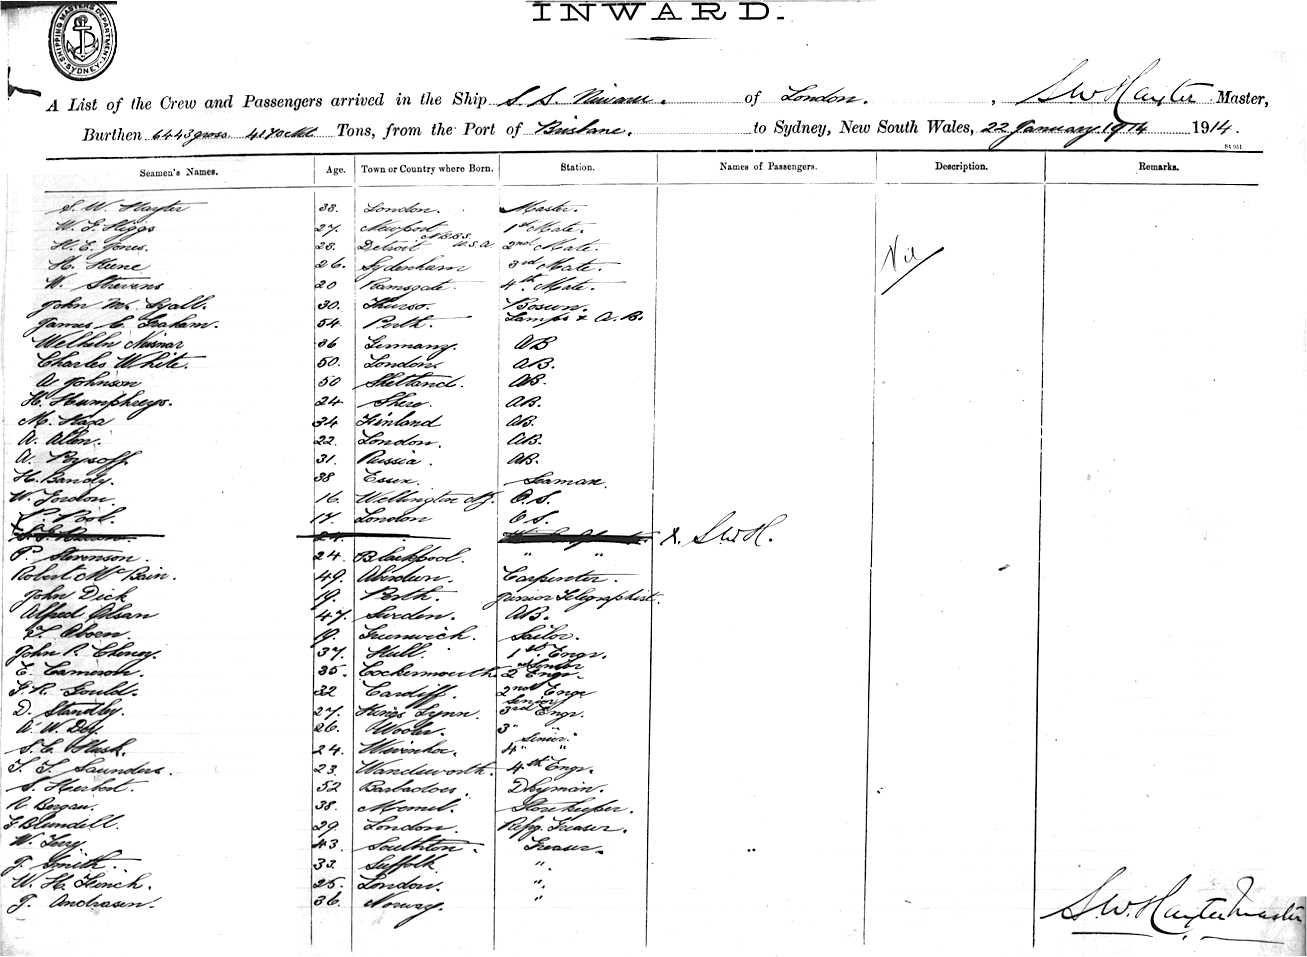 SHIPPING MASTERS DEPARTMENT SYDNEY
INWARD.
A List of the Crew and Passengers arrived in the Ship S. S. of London. , S W Hayter Master,
Burthen 6443 gross Tons, from the Port of Brisbane. to Sydney, New South Wales, 22 January 1914 1914.
Seamen's Names. Age. Town or Country where Born. Station. Names of Passengers. Description. Remarks.
S. W. Hayter 38. London. Master.
W. G. Higgs 27. Newport 1st Mate.
H. E. Jones. 28. Detroit U.S.A 2nd Mate. Nil
H. Keene 26. Sydenham 3rd Mate.
W. Stevens 20 Ramsgate. 4th Mate.
John Mc Lyall. 30. Thurso. Bosun.
James C. Graham. 54. Perth. Lamps & A.B.
36 Germany. AB
Charles White. 50. London. AB.
A Johnson 50 Shetland. AB.
H. Humphreys. 24. AB.
M. 34 Finland AB.
A. Allen. 22. London. AB.
A. 31. Russia. AB.
H. Bandy. 38 Essex. Seaman.
W. Gordon. 16. Wellington NZ. O.S.
P. Pool. 17. London O S.
24. X. S.W.H.
P. Stevenson. 24. Blackpool. " "
Robert McBain. 49. Aberdeen. Carpenter.
John Dick 19. Perth. Junior Telegraphist.
Alfred Olsan 47. Sweden. AB.
19. Greenwich. Sailor.
John P. Cheney. 37. Hull. 1st Engr.
E. Cameron. 35. Cockermouth. 2nd Senior Engr.
F. R. Gould. 32 Cardiff. 2nd Engr
D. Standby. 27. Kings Lynn. Senior 3rd Engr.
A. W. Dey. 26. Wooler. 3 " "
S. C. 24. Wivenhoe. Senior 4 " "
T. F. Saunders. 23. Wandsworth. 4th Engr.
S. Herbert. 52 Barbadoes. Dkyman.
R Bergau. 38. Memel. Storekeeper.
F. Blundell. 29. London. Refg. Greaser.
W. Terry 43. Southton. Greaser.
T. Smith. 33. Suffolk "
W. H. Finch. 25. London. "
T. Andrasen. 36. Norway. "
S.W. Hayter Master